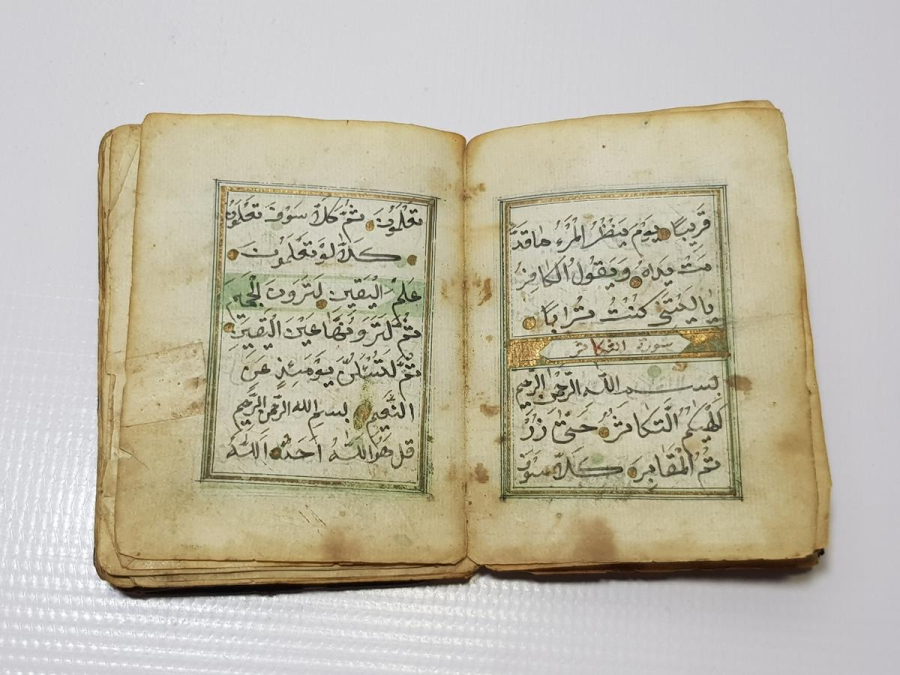 قَرِيبًا يَوْمَ يَنْظُرُ الْمَرْءُ مَا قَدَّ
مَتْ يَدَاهُ وَيَقُولُ الْكَافِرُ
يَالَيْتَنِي كُنْتُ تُرَابًا
سورة التكاثر
بسم الله الرحمن الرحيم
أَلْهَيكُمُ التَّكَاثُرُ حَتَّى زُرْ
تُمُ الْمَقَابِرَ كَلَّا سَوْفَ
تَعْلَمُونَ ثُمَّ كَلَّا سَوْفَ تَعْلَمُونَ
كَلَّا لَوْ تَعْلَمُونَ
عِلْمَ الْيَقِينِ لَتَرَوُنَّ الْجَحِيمَ
ثُمَّ لَتَرَوُنَّهَا عَيْنَ الْيَقِينِ
ثُمَّ لَتُسْئَلُنَّ يَوْمَئِذٍ عَنِ
النَّعِيمِ بسم الله الرحمن الرحيم
قُلْ هُوَ اللَّهُ أَحَدٌ اَللَّهُ